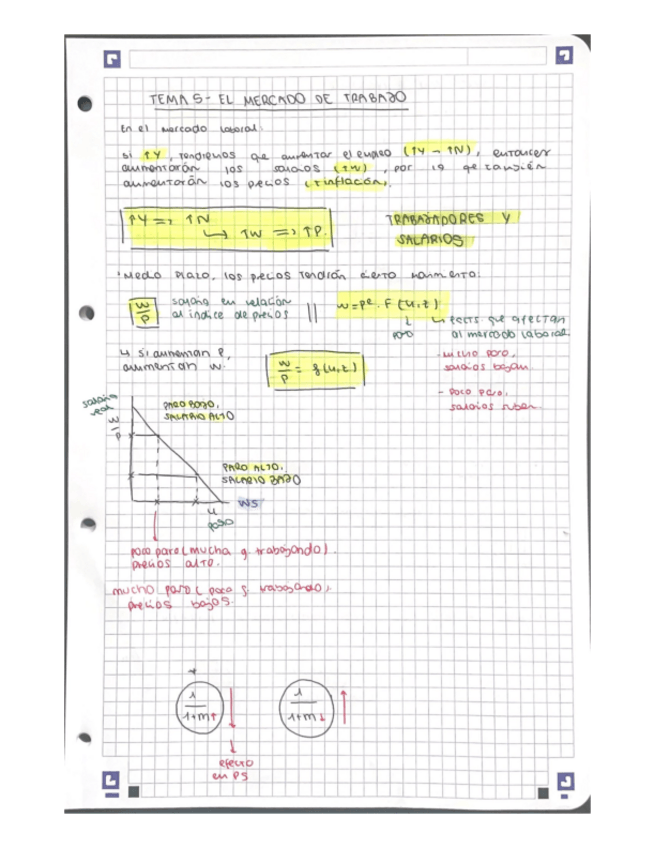 TEMA 5- EL MERCADO DE TRABAJO
En el mercado laboral:
si ↑Y, tendremos que aumentar el empleo (↑Y - ↑N), entonces
aumentarán los salarios (↑W), por lo que también
aumentarán los precios (↑inflación).
↑Y => ↑N
↳ ↑W => ↑P.
TRABAJADORES Y
SALARIOS
· Medio plazo, los precios tendrán cierto
W/P
salario en relación
al índice de precios
||
W=Pe. F (u,z)
↓
paro
↳ que afectan
al mercado laboral.
- mucho paro,
salarios bajan.
- poco paro,
salarios suben.
↳ si aumentan P,
aumentan W.
W/P = f(u,z)
salario
real
W/P
PARO BAJO,
SALARIO ALTO
PARO ALTO.
SALARIO BAJO
WS
u
paro
poco paro (mucha g trabajando).
precios alto.
mucho paro ( poca g. trabajando,
precios bajos.
1/1+m↑ ↓
1/1+m↓ ↑
↓
efecto
en PS